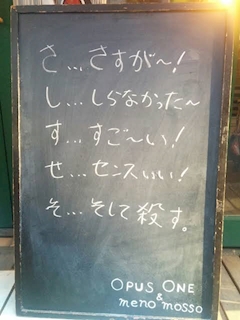 さ…さすが〜!
し…しらなかった〜
す…すご〜い!
せ…センスいい!
そ…そして殺す。
OPUS ONE
&
meno mosso